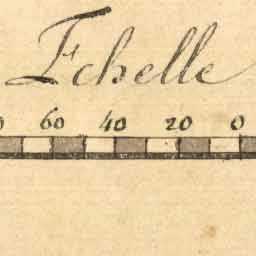 Echelle
60 40 20 0